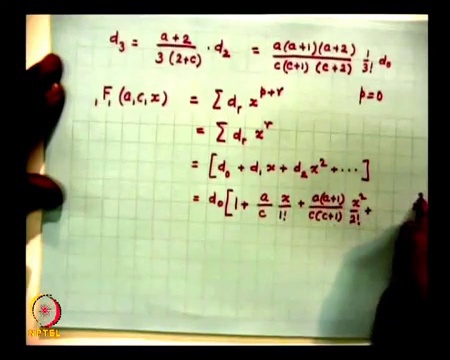 d₃ = (a+2)/(3(2+c)) · d₂ = (a(a+1)(a+2))/(c(c+1)(c+2)) 1/3! d₀
₁F₁(a,c,x) = Σ dᵣ x^(p+r) p=0
= Σ dᵣ x^r
= [d₀ + d₁x + d₂x² + ⋯]
= d₀[1 + a/c x/1! + (a(a+1))/(c(c+1)) x²/2! +
NPTEL